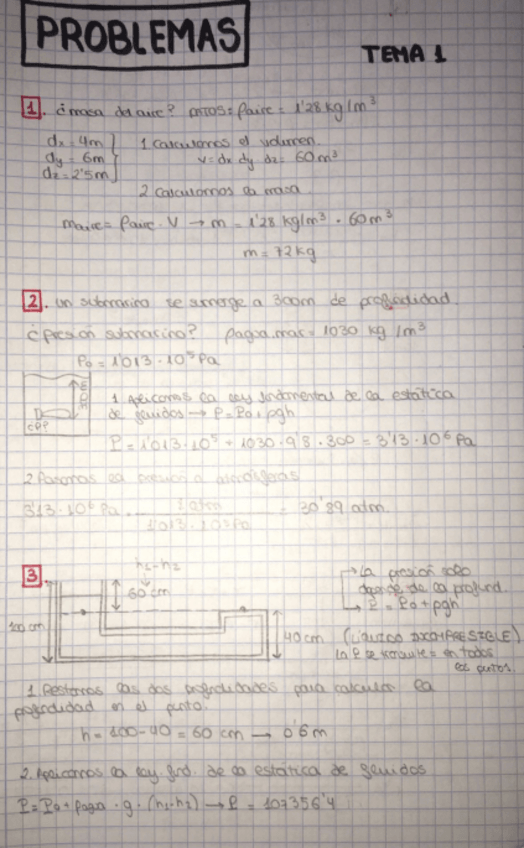 PROBLEMAS
TEMA 1
1. ¿masa del aire? DATOS = ρaire = 1'28 kg/m³
dx = 4m
dy = 6m
dz = 2'5m
1 calculamos el volumen.
V = dx dy dz = 60m³
2 calculamos la masa
maire = ρaire · V → m = 1'28 kg/m³ · 60m³
m = 72kg
2. un submarino se sumerge a 300m de profundidad.
¿Presión submarino? ρagua mar = 1030 kg/m³
P₀ = 1'013 · 10⁵ Pa
1 Aplicamos la ley fundamental de la estática
de fluidos → P = P₀ + ρgh
P = 1'013 · 10⁵ + 1030 · 9'8 · 300 = 3'13 · 10⁶ Pa
2 Pasamos la presión a atmósferas
3'13 · 10⁶ Pa · 1 atm / 1'013 · 10⁵ Pa = 30'89 atm.
3.
h₁-h₂
60 cm
100 cm
40 cm
→ La presión solo
depende de la profund.
→ P = P₀ + ρgh
(LÍQUIDO INCOMPRESIBLE)
la P se transmite = en todos
los puntos.
1 Restamos las dos profundidades para calcular la
profundidad en el punto.
h = 100 - 40 = 60 cm → 0'6 m
2. Aplicamos la ley. fnd. de la estática de fluidos
P = P₀ + ρagua · g · (h₁-h₂) → P = 107356'4